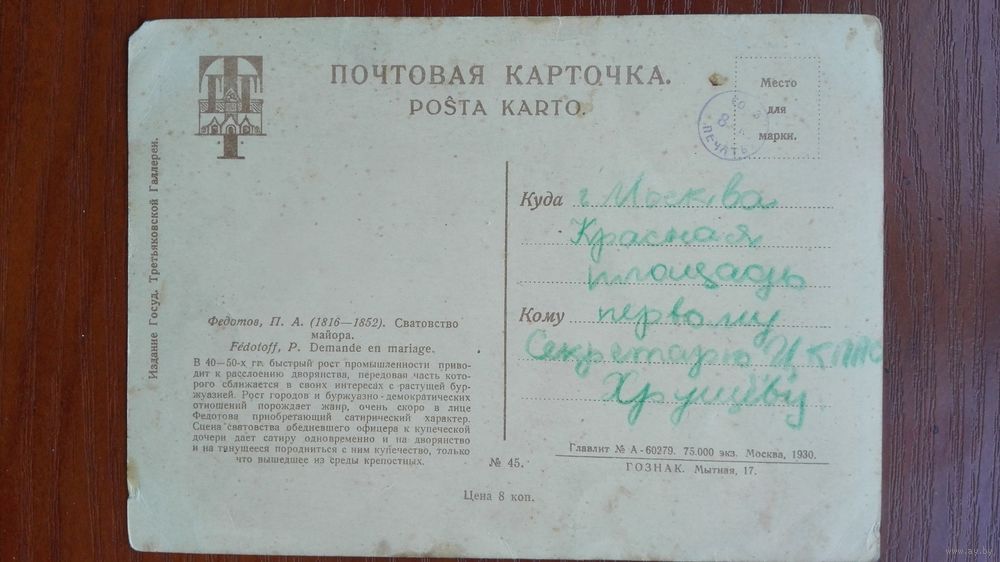 ПОЧТОВАЯ КАРТОЧКА.
POŜTA KARTO.
Место
для
марки.
8
ПЕЧАТЬ
Издание Госуд. Третьяковской Галлереи.
Куда г. Москва
Красная
площадь
Кому первому
Секретарю ЦК
Хрущёву
Федотов, П. А. (1816—1852). Сватовство
майора.
Fédotoff, P. Demande en mariage.
В 40—50-х гг. быстрый рост промышленности приво-
дит к расслоению дворянства, передовая часть кото-
рого сближается в своих интересах с растущей бур-
жуазией. Рост городов и буржуазно-демократических
отношений порождает жанр, очень скоро в лице
Федотова приобретающий сатирический характер.
Сцена сватовства обедневшего офицера к купеческой
дочери дает сатиру одновременно и на дворянство
и на тянущееся породниться с ним купечество, только
что вышедшее из среды крепостных.
№ 45.
Главлит № А-60279. 75.000 экз. Москва, 1930.
ГОЗНАК. Мытная, 17.
Цена 8 коп.
www.ay.by